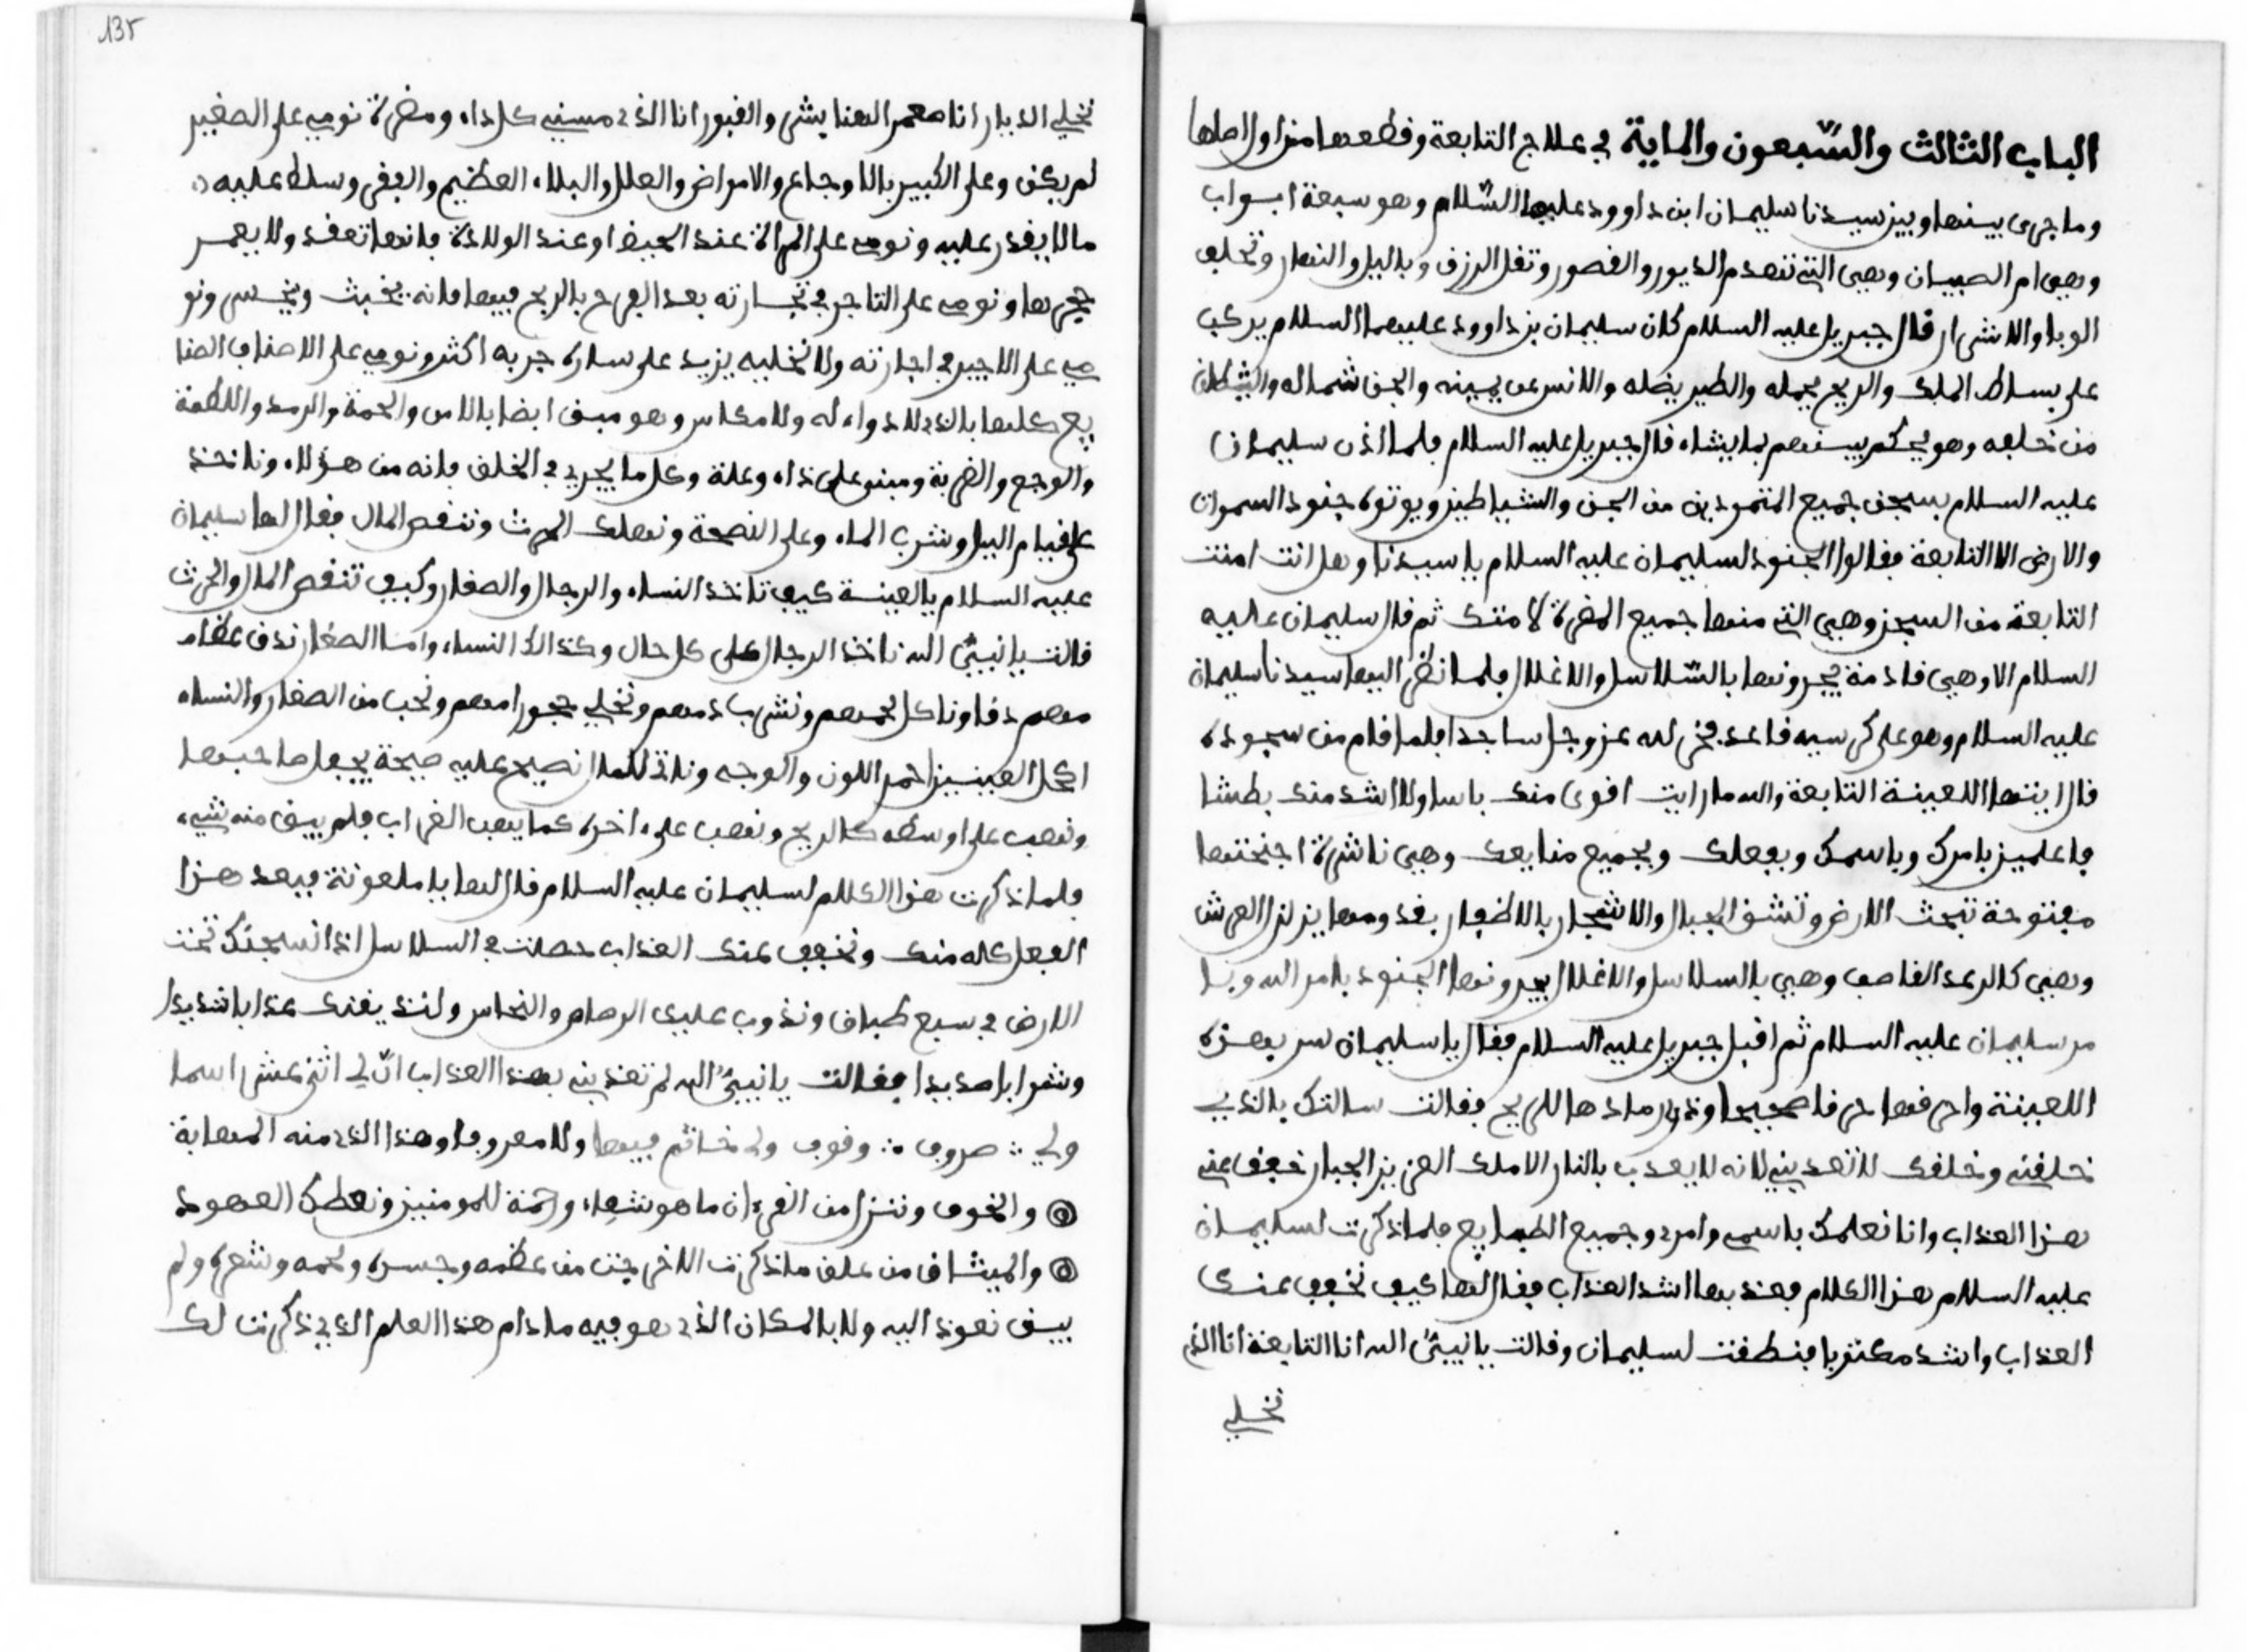 الباب الثالث والسّبعون والماية في علاج التابعة وقطعها من اول اصلها
وما جرى بينها وبين سيدنا سليمان ابن داوود عليهما السّلام وهو سبعة ابواب
وهي ام الصبيان وهي التي تهدم الديور والقصور وتقل الرزق وباليل والنهار وتخلف
الوبا والاشرار قال جبريل عليه السلام كان سليمان بن داوود عليهما السلام يركب
على بساط الملك والريح يحمله والطير يضله والانس عن يمينه والجن شماله والشيطان
من خلفه وهو يحكم بينهم بما يشاء قال جبريل عليه السلام فلما اذن سليمان
عليه السلام بسجن جميع المتمودين من الجن والشياطين ويوتوه جنود السموات
والارض الا التابعة فقالوا الجنود لسليمان عليه السلام يا سيدنا وهل انت امنت
التابعة من السجن وهي التي منها جميع المضرة لامتك ثم قال سليمان عليه
السلام الا وهي قادمة يجرونها بالسّلاسل والاغلال فلما نظر اليها سيدنا سليمان
عليه السلام وهو على كرسيه قاعد فخر لله عز وجل ساجدا فلما قام من سجوده
قال ايتها اللعينة التابعة والله ما رايت اقوى منك باسا ولا اشد منك بطشا
فاعلمين بامرك وباسمك وبفعلك وبجميع منايعك وهي ناشرة اجنحتها
مفتوحة تبحث الارض وتشق الجبال والاشجار بالاظفار بقدومها يزلزل العرش
وهي كالرعد القاصف وهي بالسلاسل والاغلال يجرونها الجنود بامر الله وبا
مر سليمان عليه السلام ثم اقبل جبريل عليه السلام فقال يا سليمان سر بهذه
اللعينة واحرقها حرقا صحيحا وذر رمادها للريح فقالت سالتك بالذي
خلقني وخلقك لا تعذبني لانه لا يعذب بالنار الا ملك العزيز الجبار خفف عني
هذا العذاب وانا نعلمك باسمي وامري وجميع الطبايع فلما ذكرت لسليمان
عليه السلام هذا الكلام فعذبها اشد العذاب فقال لها كيف نخفف عنك
العذاب واشد مكتوبا فنطقت لسليمان وقالت يا نبيّ الله انا التابعة انا الذي
نخلي
135
نخلي الديار انا معمر الهنايش والقبور انا الذي مسني كل داء ومضرة نومي على الصغير
لم يكن وعلى الكبير بالاوجاع والامراض والعلل والبلاء العظيم والفقر وسلط عليه
ما لا يقدر عليه ونومي على المراة عند الحيض او عند الولادة فانها تعقد ولا يعمر
حجرها ونومي على التاجر في تجارته بعد الفرح بالربح فيها فانه يخبث ويخسر ونو
مي على الاجير في اجارته ولا نخليه يزيد على ساره جربه اكثر ونومي على الاصناف الصنا
يع كلها بالذي لا دواء له ولا مكاس وهو مبني ايضا بالامس والحمة والرمد واللطمة
والوجع والضربة ومبني على ذاء وعلة وكل ما يجري في الخلق فانه من هؤلاء وناخذ
على قيام اليل وشرب الماء وعلى النصحة ونهلك الحرث وننقص المال فقال لها سليمان
عليه السلام يا لعينة كيف تاخذ النساء والرجال والصغار وكيف تنقص المال والحرث
قالت يا نبيّ الله ناخذ الرجال على كل حال وكذالك النساء واما الصغار ندق عظام
مهم دقا وناكل لحمهم ونشرب دمهم ونخلي حجور امهم ونحب من الصغار والنساء
اكحل العينين احمر اللون والوجه وناتي للماا نصيح عليه صيحة يجعل صاحبها
ونهب على اوسطه كالريح ونهب على اخره كما يهب الغراب فلم يبق منه شيء
فلما ذكرت هذا الكلام لسليمان عليه السلام قال لها يا ملعونة فبعد هذا
الفعل كله منك ونخفف عنك العذاب حصلت في السلاسل اذا نسجنك تحت
الارض في سبع طباق ونذوب عليك الرصاص والنحاس ولنذيقنك عذابا شديدا
وشرابا صديدا فقالت يا نبيّ الله لم تعذبني بهذا العذاب انّ لي اثني عشر اسما
ولي ؞ صروف ؞ وقوف ولي خاتم فيها ولا معروفا وهذا الذي منه المهابة
والخوف وننزل من القرءان ما هو شفاء ورحمة للمومنين ونعطك العهود
والميثاق من علق ما ذكرت الا خرجت من عظمه وجسده ولحمه وشعره ولم
يبق نعوذ اليه ولا بالمكان الذي هو فيه ما دام هذا العلم الذي ذكرت لك